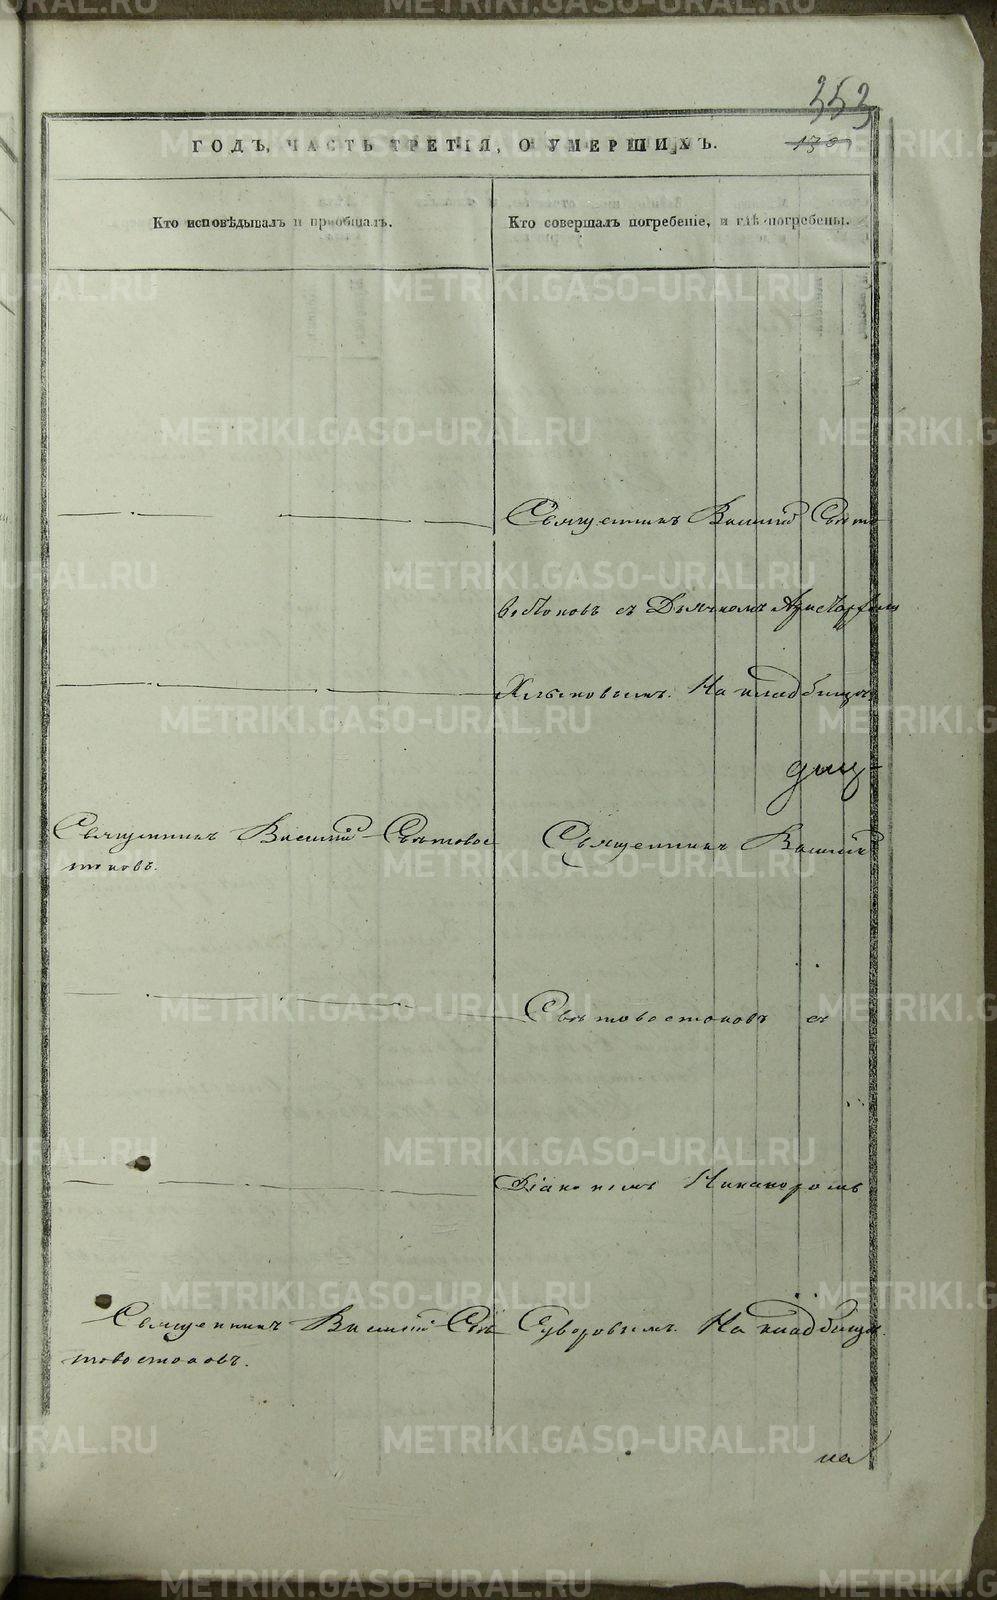 353
130
ГОДЪ, ЧАСТЬ ТРЕТІЯ, О УМЕРШИХЪ.
Кто исповѣдывалъ и пріобщалъ.
Кто совершалъ погребеніе, и гдѣ погребены.
Священникъ Василій Свѣто
востоковъ съ Дьячкомъ Аристархомъ
На кладбищѣ
Священникъ Василій Свѣтовос
токовъ.
Священникъ Василій
Свѣтовостоковъ съ
Діакономъ Никаноромъ
Священникъ Василій Свѣ
товостоковъ.
Суворовымъ. На кладбищѣ.
METRIKI.GASO-URAL.RU